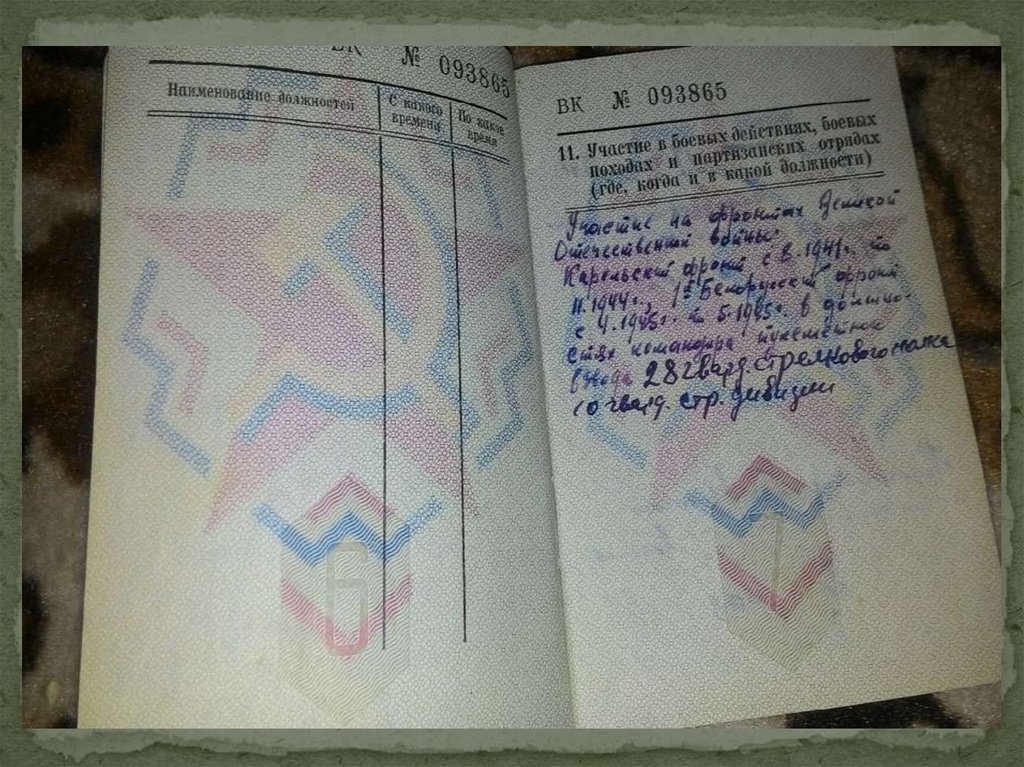 ВК № 093865
Наименование должностей
С какого времени
По какое время
6
ВК № 093865
11. Участие в боевых действиях, боевых
походах и партизанских отрядах
(где, когда и в какой должности)
Участие на фронтах Великой
Отечественной войны:
Карельский фронт с 8.1941г. по
11.1944г., 1й Белорусский фронт
с 4.1945г. по 5.1945г. в должно-
стях командира пулеметного
взвода 28 гвард. стрелкового полка
10 гвард. стр. дивизии
7